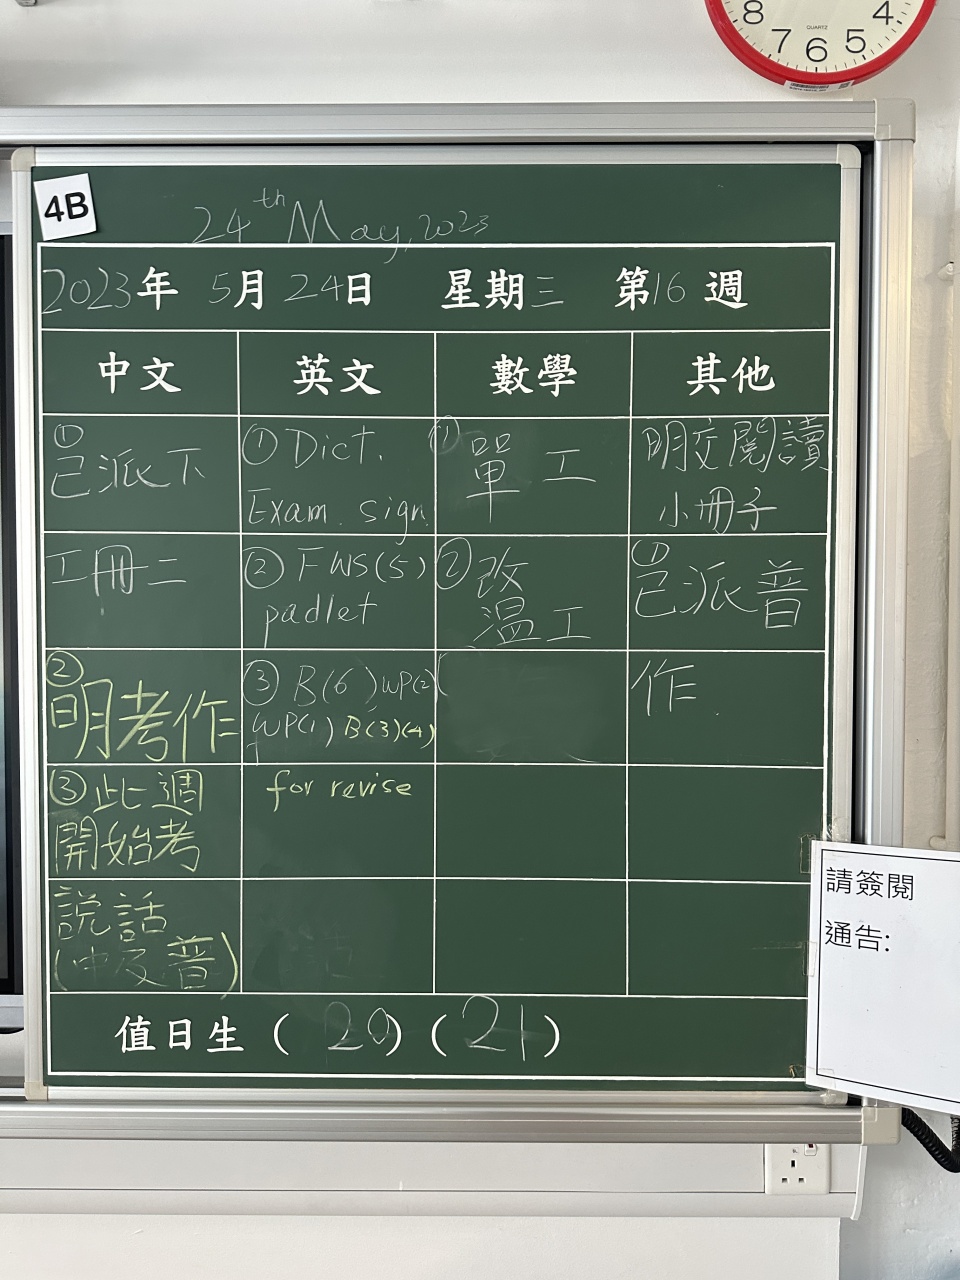 8
7
6
5
4
QUARTZ
4B
24th May, 2023
2023年 5月 24日 星期三 第16週
中文 英文 數學 其他
①
已派下
工冊二
②
明考作
③此週
開始考
說話
(中及普)
① Dict.
Exam. sign.
② FWS(5)
padlet
③ B(6) WP(2)
WP(1) B(3)(4)
for revise
①
單 工
②改
溫工
明交閱讀
小冊子
①
已派普
作
值日生 ( 20) (21)
請簽閱
通告: